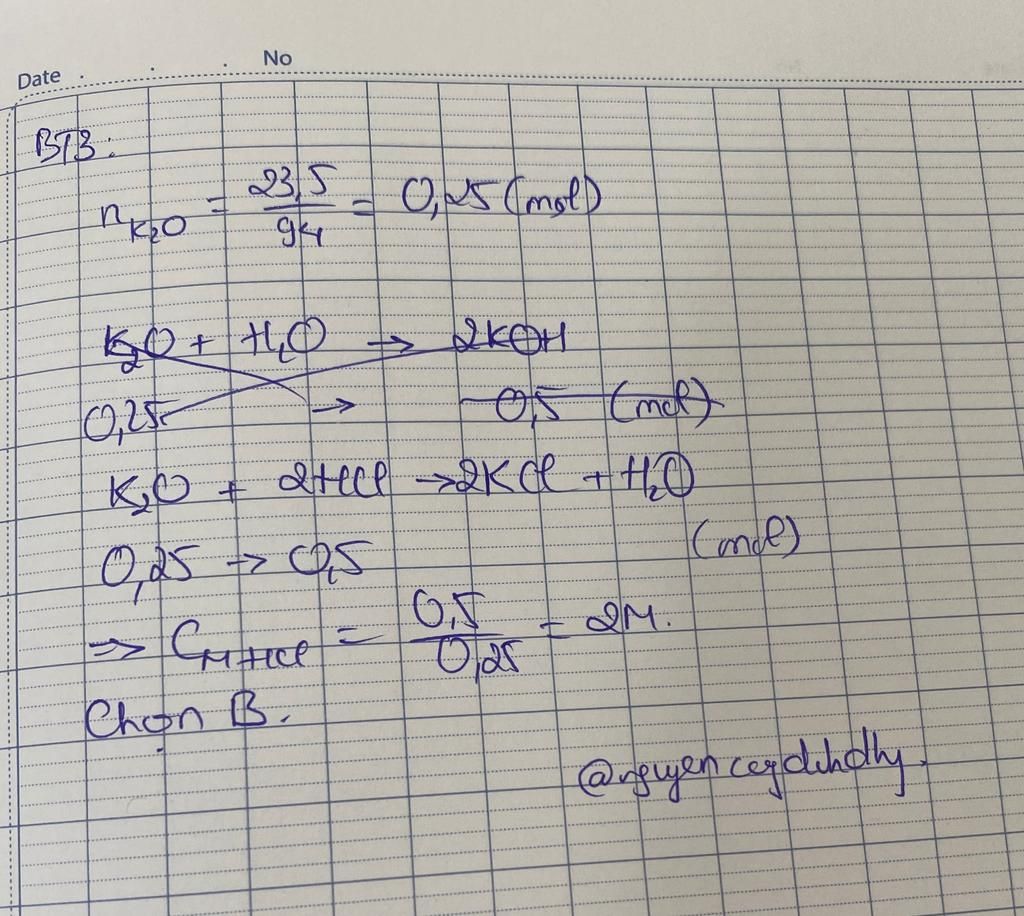 Date . . . No
BT3:
n K₂O = 23,5 / 94 = 0,25 (mol)
K₂O + H₂O → 2KOH
0,25 → 0,5 (mol)
K₂O + 2HCl → 2KCl + H₂O
0,25 → 0,5 (mol)
⇒ C M HCl = 0,5 / 0,25 = 2M.
Chọn B.